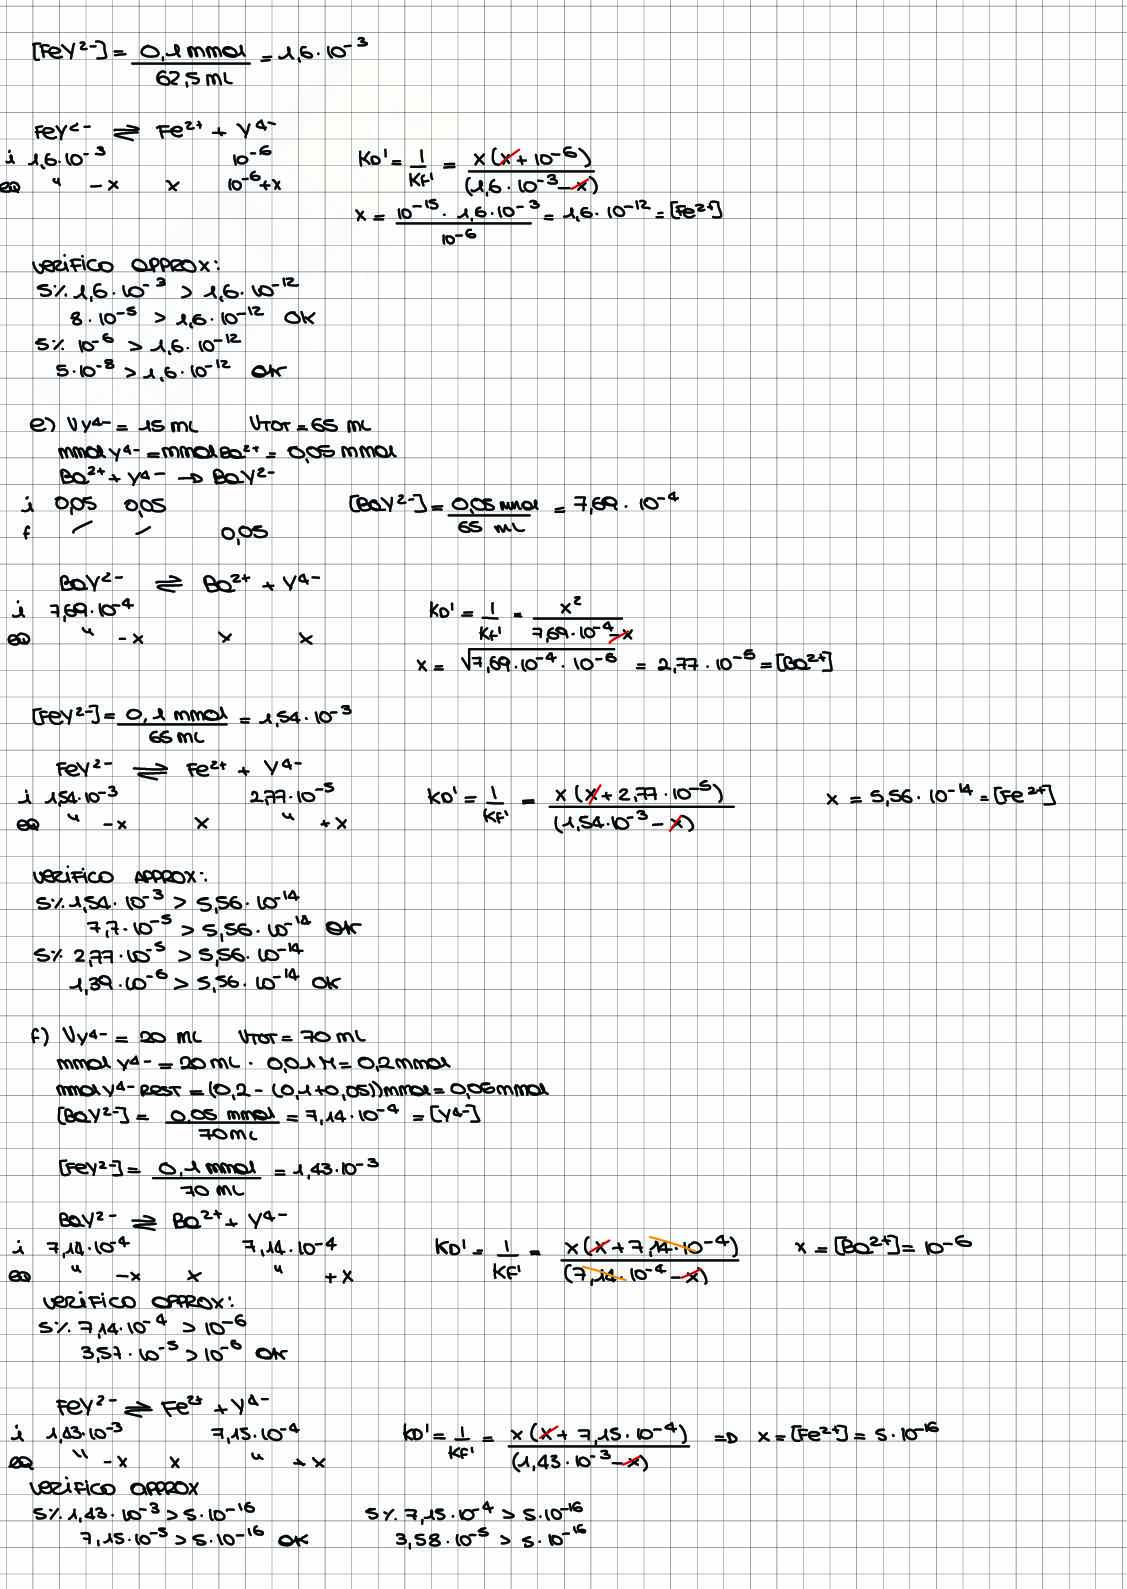 [FeY²⁻] = 0,1 mmol / 62,5 mL = 1,6 · 10⁻³
FeY²⁻ ⇌ Fe²⁺ + Y⁴⁻
i 1,6·10⁻³ 10⁻⁶
eq " -x x 10⁻⁶+x
KD' = 1/Kf' = x(x + 10⁻⁶) / (1,6 · 10⁻³ - x)
x = 10⁻¹⁵ · 1,6·10⁻³ / 10⁻⁶ = 1,6 · 10⁻¹² = [Fe²⁺]
verifico approx:
5% 1,6 · 10⁻³ > 1,6 · 10⁻¹²
8 · 10⁻⁵ > 1,6 · 10⁻¹² OK
5% 10⁻⁶ > 1,6 · 10⁻¹²
5·10⁻⁸ > 1,6 · 10⁻¹² OK
e) Vy⁴⁻ = 15 mL VTOT = 65 mL
mmol y⁴⁻ = mmol Ba²⁺ = 0,05 mmol
Ba²⁺ + Y⁴⁻ → BaY²⁻
i 0,05 0,05
f / / 0,05
[BaY²⁻] = 0,05 mmol / 65 mL = 7,69 · 10⁻⁴
BaY²⁻ ⇌ Ba²⁺ + Y⁴⁻
i 7,69·10⁻⁴
eq " -x x x
KD' = 1/Kf' = x² / 7,69·10⁻⁴ - x
x = √7,69·10⁻⁴ · 10⁻⁶ = 2,77 · 10⁻⁵ = [Ba²⁺]
[FeY²⁻] = 0,1 mmol / 65 mL = 1,54 · 10⁻³
FeY²⁻ ⇌ Fe²⁺ + Y⁴⁻
i 1,54·10⁻³ 2,77·10⁻⁵
eq " -x x " +x
KD' = 1/Kf' = x(x + 2,77 · 10⁻⁵) / (1,54·10⁻³ - x) x = 5,56 · 10⁻¹⁴ = [Fe²⁺]
verifico approx:
5% 1,54 · 10⁻³ > 5,56 · 10⁻¹⁴
7,7 · 10⁻⁵ > 5,56 · 10⁻¹⁴ OK
5% 2,77 · 10⁻⁵ > 5,56 · 10⁻¹⁴
1,39 · 10⁻⁶ > 5,56 · 10⁻¹⁴ OK
f) Vy⁴⁻ = 20 mL VTOT = 70 mL
mmol y⁴⁻ = 20 mL · 0,01 M = 0,2 mmol
mmol y⁴⁻ rest = (0,2 - (0,1+0,05)) mmol = 0,05 mmol
[BaY²⁻] = 0,05 mmol / 70 mL = 7,14 · 10⁻⁴ = [Y⁴⁻]
[FeY²⁻] = 0,1 mmol / 70 mL = 1,43·10⁻³
BaY²⁻ ⇌ Ba²⁺ + Y⁴⁻
i 7,14·10⁻⁴ 7,14·10⁻⁴
eq " -x x " +x
KD' = 1/Kf' = x(x + 7,14·10⁻⁴) / (7,14·10⁻⁴ - x) x = [Ba²⁺] = 10⁻⁶
verifico approx:
5% 7,14·10⁻⁴ > 10⁻⁶
3,57 · 10⁻⁵ > 10⁻⁶ OK
FeY²⁻ ⇌ Fe²⁺ + Y⁴⁻
i 1,43·10⁻³ 7,15·10⁻⁴
eq " -x x " +x
KD' = 1/Kf' = x(x + 7,15·10⁻⁴) / (1,43·10⁻³ - x) ⇒ x = [Fe²⁺] = 5·10⁻¹⁶
verifico approx
5% 1,43 · 10⁻³ > 5·10⁻¹⁶ 5% 7,15·10⁻⁴ > 5·10⁻¹⁶
7,15·10⁻⁵ > 5·10⁻¹⁶ OK 3,58·10⁻⁵ > 5·10⁻¹⁶